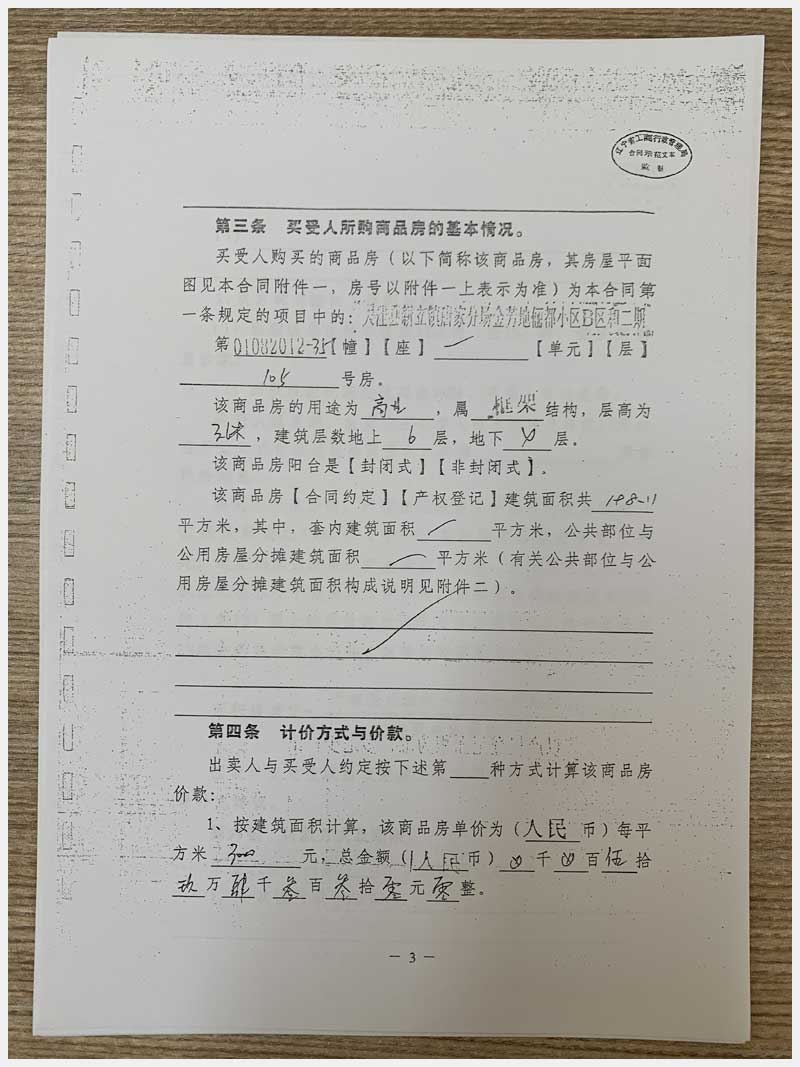 辽宁省工商行政管理局
合同示范文本
监制
第三条 买受人所购商品房的基本情况。
买受人购买的商品房(以下简称该商品房,其房屋平面
图见本合同附件一,房号以附件一上表示为准)为本合同第
一条规定的项目中的:大洼县新立镇唐家分场金芳地俪都小区B区和二期
第01082012-35【幢】【座】 【单元】【层】
105号房。
该商品房的用途为商业,属框架结构,层高为
3米,建筑层数地上6层,地下层。
该商品房阳台是【封闭式】【非封闭式】。
该商品房【合同约定】【产权登记】建筑面积共198.11
平方米,其中,套内建筑面积 平方米,公共部位与
公用房屋分摊建筑面积 平方米(有关公共部位与公
用房屋分摊建筑面积构成说明见附件二)。
第四条 计价方式与价款。
出卖人与买受人约定按下述第 种方式计算该商品房
价款:
1、按建筑面积计算,该商品房单价为(人民币)每平
方米元,总金额(人民币)千百伍拾
玖万肆千叁百叁拾零元零整。
— 3 —